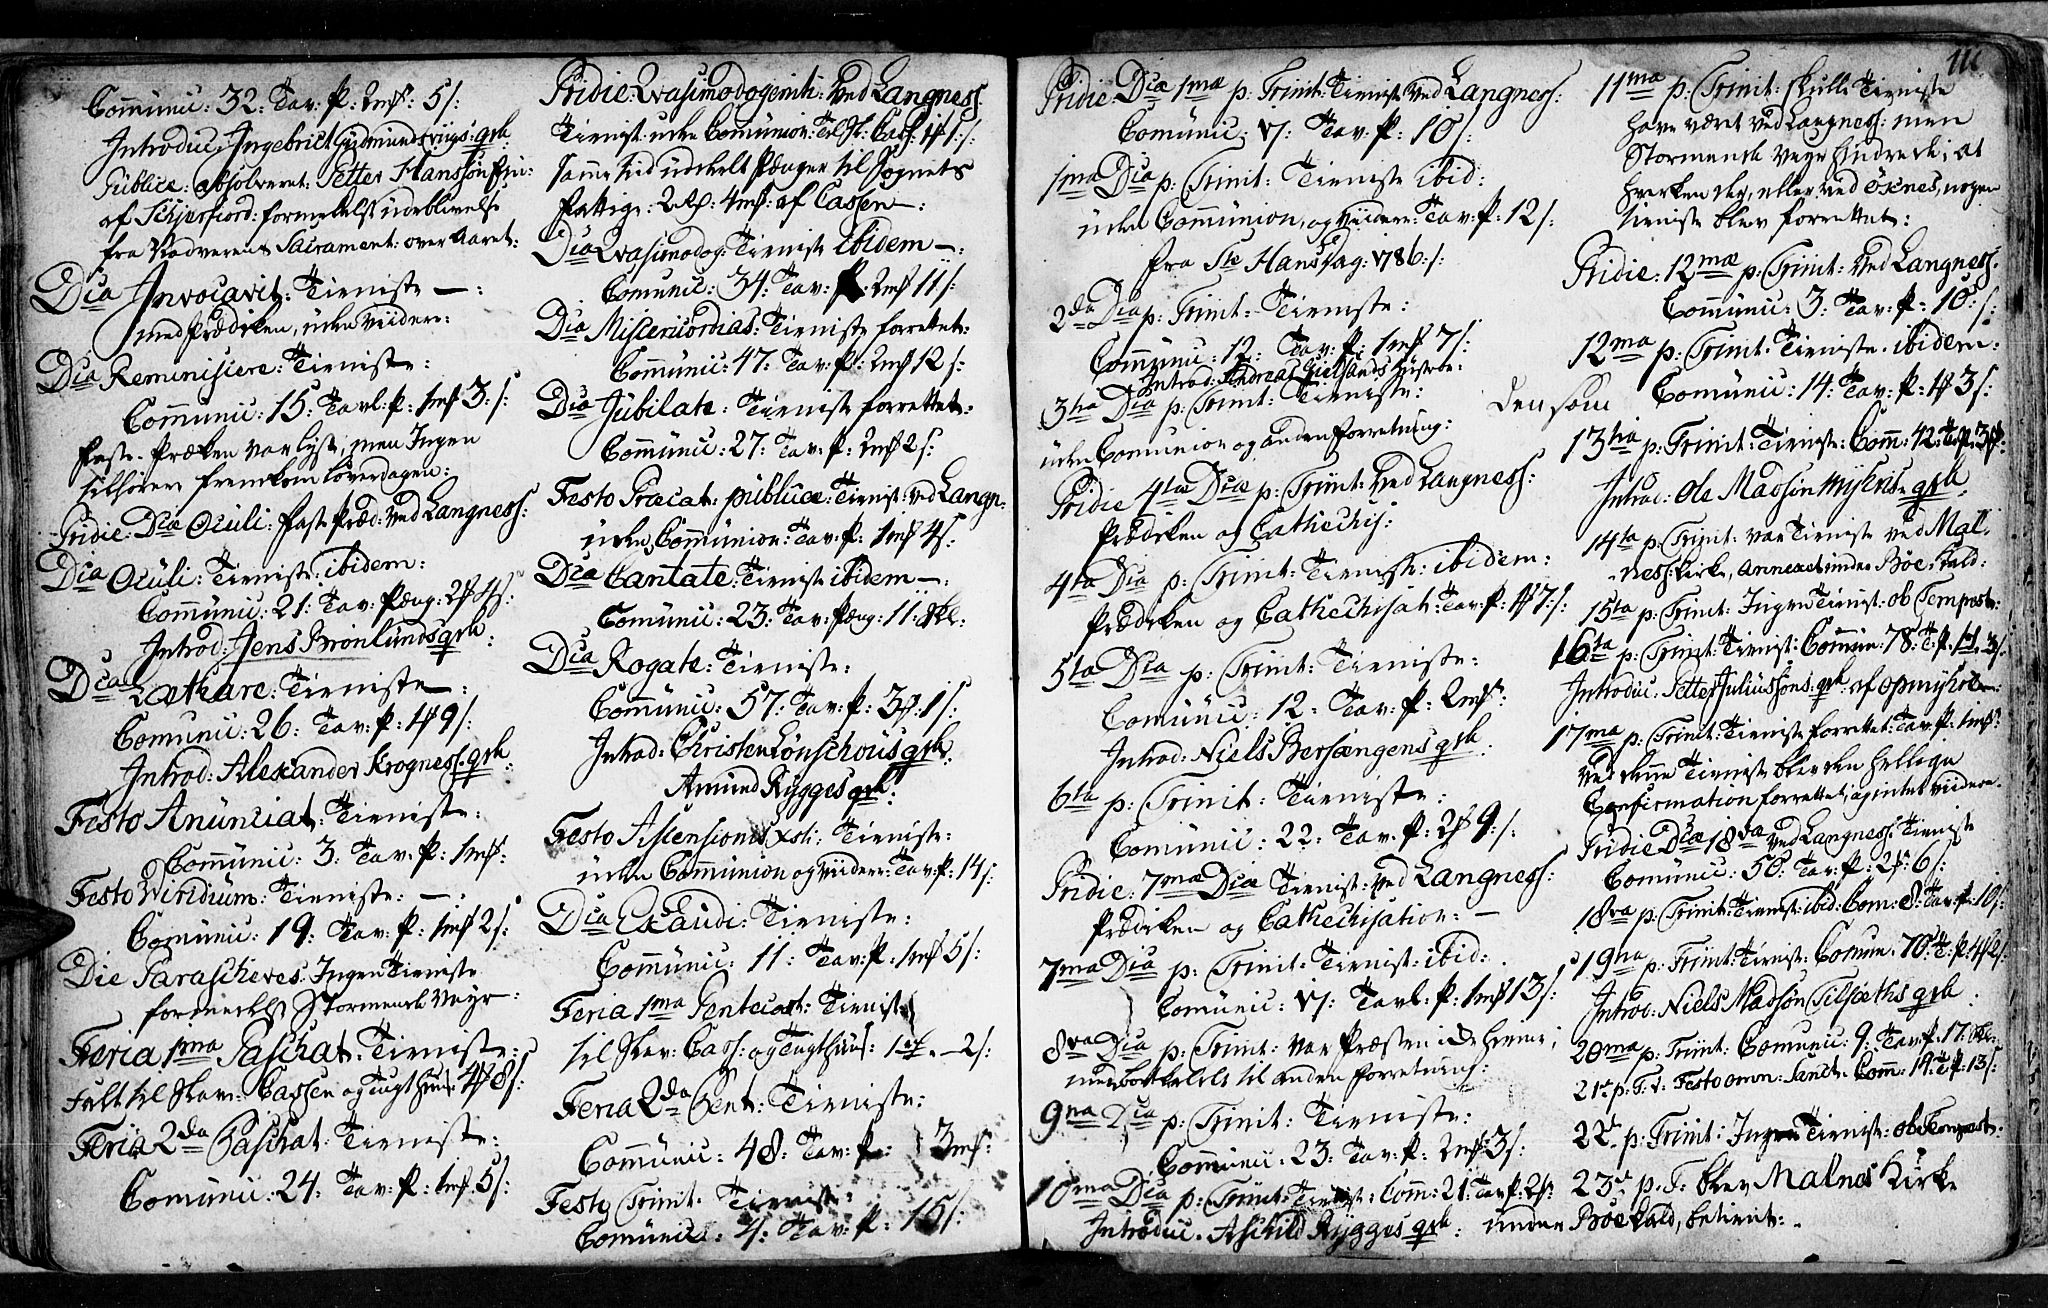 Com̄unic: 32: Tav: P: 2mk: 5/:
Introduc: Ingebrict Gudmundsviigs: qvk:
Publice: absolveret: Petter Hanssøn Fin:
af Schjerfiord: formedelst udeblivelse
fra Nadverens Sacrament: over Aaret:
Dca Invocavit: Tieniste —:
med Prædiken, uden viidere:
Dca Reminiscere: Tieniste:
Com̄unic: 15: Tavl: P: 1mk 3:/:
Faste-Præken var lyst, men Ingen
tilhörere fremkom löverdagen:
Pridie: Dcæ Oculi: Faste Præd: ved Langness:
Dca Oculi: Tieniste: ibidem:
Com̄unic: 21: Tav: Pæng: 2 4/:
Introd: Jens Brønlunds qvk:
Dca Lætkare: Tieniste —:
Com̄unic: 26: Tav: P: 4 9/:
Introd: Alexander Krogness: qvk:
Festo Anunciat: Tieniste:
Com̄unic: 3: Tav: P: 1mk:
Festo Viridium: Tieniste: —:
Com̄unic: 19: Tav: P: 1mk 2/:
Die Parascheves: Ingen Tieniste
formedelst Stormende Veyr:
Feria 1ma Paschat: Tieniste:
Faldt til Slav: Cassen og Tugthuus: 4 8/:
Feria 2da Paschat: Tieniste:
Com̄unic: 24: Tav: P: 1mk 5/:
Pridie: Qvasimodogeniti: ved Langness:
Tienist: uden Com̄union: Tesl: Cass:
samme tid uddeelt Penger til Sognets
Fattige: 2 4mk: af Cassen —:
Dca Qvasimodog: Tieniste ibidem —:
Com̄unic: 34: Tav: P: 2mk 11/:
Dca Misericordias: Tieniste forrettet:
Com̄unic: 47: Tav: P: 2mk 12/:
Dca Jubilate: Tieniste forrettet:
Com̄unic: 27: Tav: P: 2mk 2/:
Festo Præcat: publica: Tienist: ved Langn:
uden Com̄union: Tav: P: 1mk 4/:
Dca Cantate: Tieniste ibidem —:
Com̄unic: 23: Tav: Pæng: 11: Skl:
Dca Rogate: Tieniste:
Com̄unic: 57: Tav: P: 3 1/:
Introd: Christen Lönschous qvk:
Amund Rygges qvk:
Festo Ascensionis Xsti: Tieniste:
uden Com̄union og viidere: Tav: P: 14/:
Dca Exaudi: Tieniste:
Com̄unic: 11: Tav: P: 1mk 5/:
Feria 1ma Pentecost: Tienist:
til Slav: Cass: og Tugthuus: 1 — 2/:
Feria 2da Pent: Tieniste:
Com̄unic: 48: Tav: P: 3mk:
Festo Trinit: Tieniste:
Com̄unic: 4: Tav: P: 15/:
111
Pridie Dcæ 1mæ p: Trinit: Tieniste ved Langness:
Com̄unic: 17: Tav: P: 10/:
1ma Dca p: Trinit: Tieniste ibid:
uden Com̄union, og viidere: Tav: P: 12/:
fra Ste Hans Dag: 1786:/:
2da Dca p: Trinit: Tieniste:
Com̄unic: 12: Tav: P: 1mk 7/:
Introd: Andreas Hustroe:
3tia Dca p: Trinit: Tieniste:
uden Com̄union og anden forretning:
Pridie 4tæ Dcæ p: Trinit: ved Langness:
Prædiken og Cathechis:
4ta Dca p: Trinit: Tieniste: ibidem:
Prædiken og Cathechisat: Tav: P: 1 7:/:
5ta Dca p: Trinit: Tieniste:
Com̄unic: 12: Tav: P: 2mk:
Introd: Niels Bersængens qvk:
6ta p: Trinit: Tieniste:
Com̄unic: 22: Tav: P: 2 9:/:
Pridie: 7mæ Dcæ Tienist: ved Langness:
Prædiken og Cathechisation: —
7ma Dca p: Trinit: Tienist: ibid:
Com̄unic: 17: Tavl: P: 1mk 13/:
8va Dca p: Trinit: var Præsten icke hieme;
men bortkaldt til anden forretning:
9na Dca p: Trinit: Tieniste:
Com̄unic: 23: Tav: P: 2mk: 3/:
10ma Dca p: Trinit: Tienist: Com̄: 21: Tav: P: 2
Introduc: Aschild Rygges qvk:
11ma p: Trinit: skulle Tieniste
have været ved Langness: men
Stormende Veyr hindrede; at
hverken der, eller ved Öxnes, nogen
tieniste blev forrettet:
Pridie: 12mæ p: Trinit: ved Langness:
Com̄unic: 3: Tav: P: 10:/:
12ma p: Trinit: Tieniste ibidem:
Com̄unic: 14: Tav: P: 1 3/:
13tia p: Trinit: Tieniste: Com̄: 42: T: P: 3
Introd: Ole Madsøn qvk:
14ta p: Trinit: var Tieniste ved Mal-
ness: Kirke, Annexet under Bøe: Kald:
15ta p: Trinit: Ingen Tienist: ob Tempest:
16ta p: Trinit: Tienist: Com̄un: 78: T: P: 3/:
Introduc: Petter Juliussøns: qvk: af
17ma p: Trinit: Tieniste forrettet: Tav: P: 1mk:
Ved denne Tieniste blev den hellige
Confirmation forrettet, og intet viidere.
Pridie Dcæ 18va ved Langness: Tieniste
Com̄unic: 50: Tav: P: 2 6/:
18va p: Trinit: Tienist: ibid: Com: 8: Tav: P: 10/:
19na p: Trinit: Tienist: Com̄un: 70: T: P: 4 2/:
Introd: Niels Madsøn Tilsæths qvk:
20ma p: Trinit: Com̄unic: 9: Tav: P: 17: Skl:
21de p: T: Festo omn: Sanct: Com̄: 19: T: P: 13/:
22de p: Trinit: Ingen Tienist: ob Tempest:
23de p: T: blev Malnes Kirke
under Böe Kald, betient: